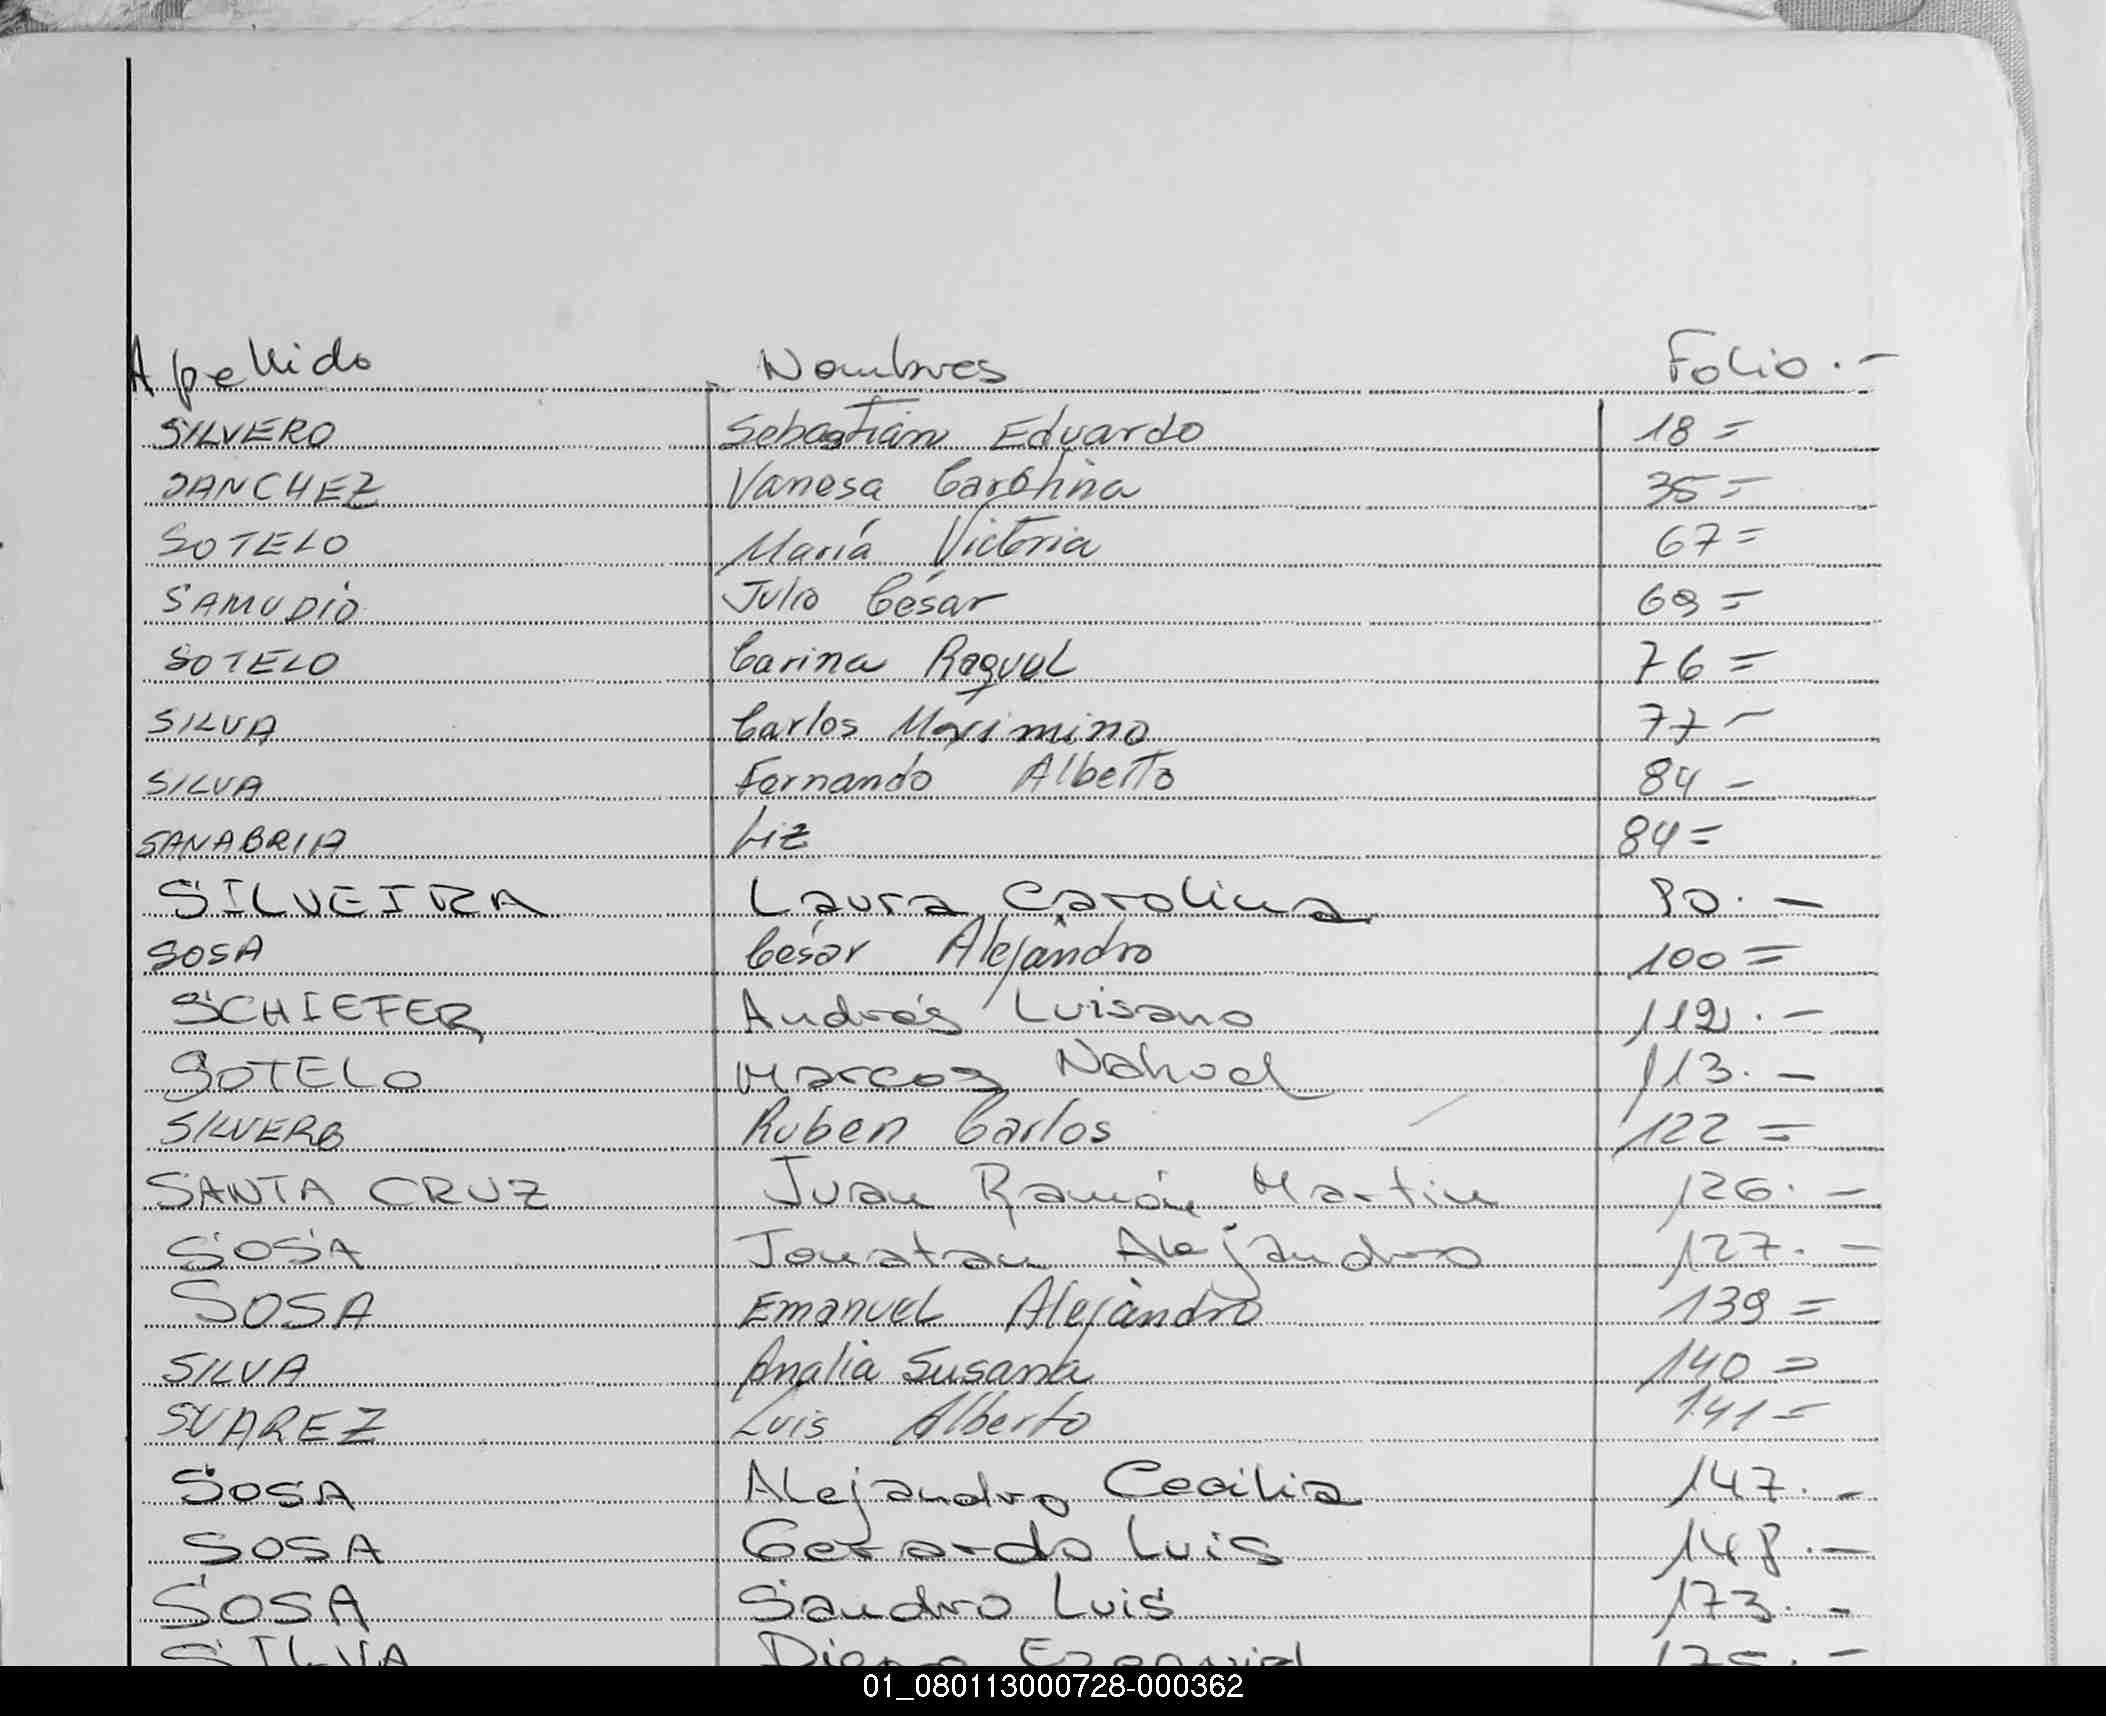 Apellido Nombres Folio.-
SILVERO Sebastian Eduardo 18=
SANCHEZ Vanesa Carolina 35=
SOTELO María Victoria 67=
SAMUDIO Julio César 69=
SOTELO Carina Raquel 76=
SILVA Carlos Maximino 77-
SILVA Fernando Alberto 84-
SANABRIA Liz 84=
SILVEIRA Laura Carolina 90.-
SOSA César Alejandro 100=
SCHIEFER Andrés Luisano 112.-
SOTELO Marcos Nahuel 113.-
SILVERO Ruben Carlos 122=
SANTA CRUZ Juan Ramón Martin 126.-
SOSA Jonatan Alejandro 127.-
SOSA Emanuel Alejandro 139=
SILVA Analia Susana 140=
SUAREZ Luis Alberto 141=
SOSA Alejandro Cecilia 147.-
SOSA Gerardo Luis 148.-
SOSA Sandro Luis 173.-
SILVA Diego Ezequiel
01_080113000728-000362